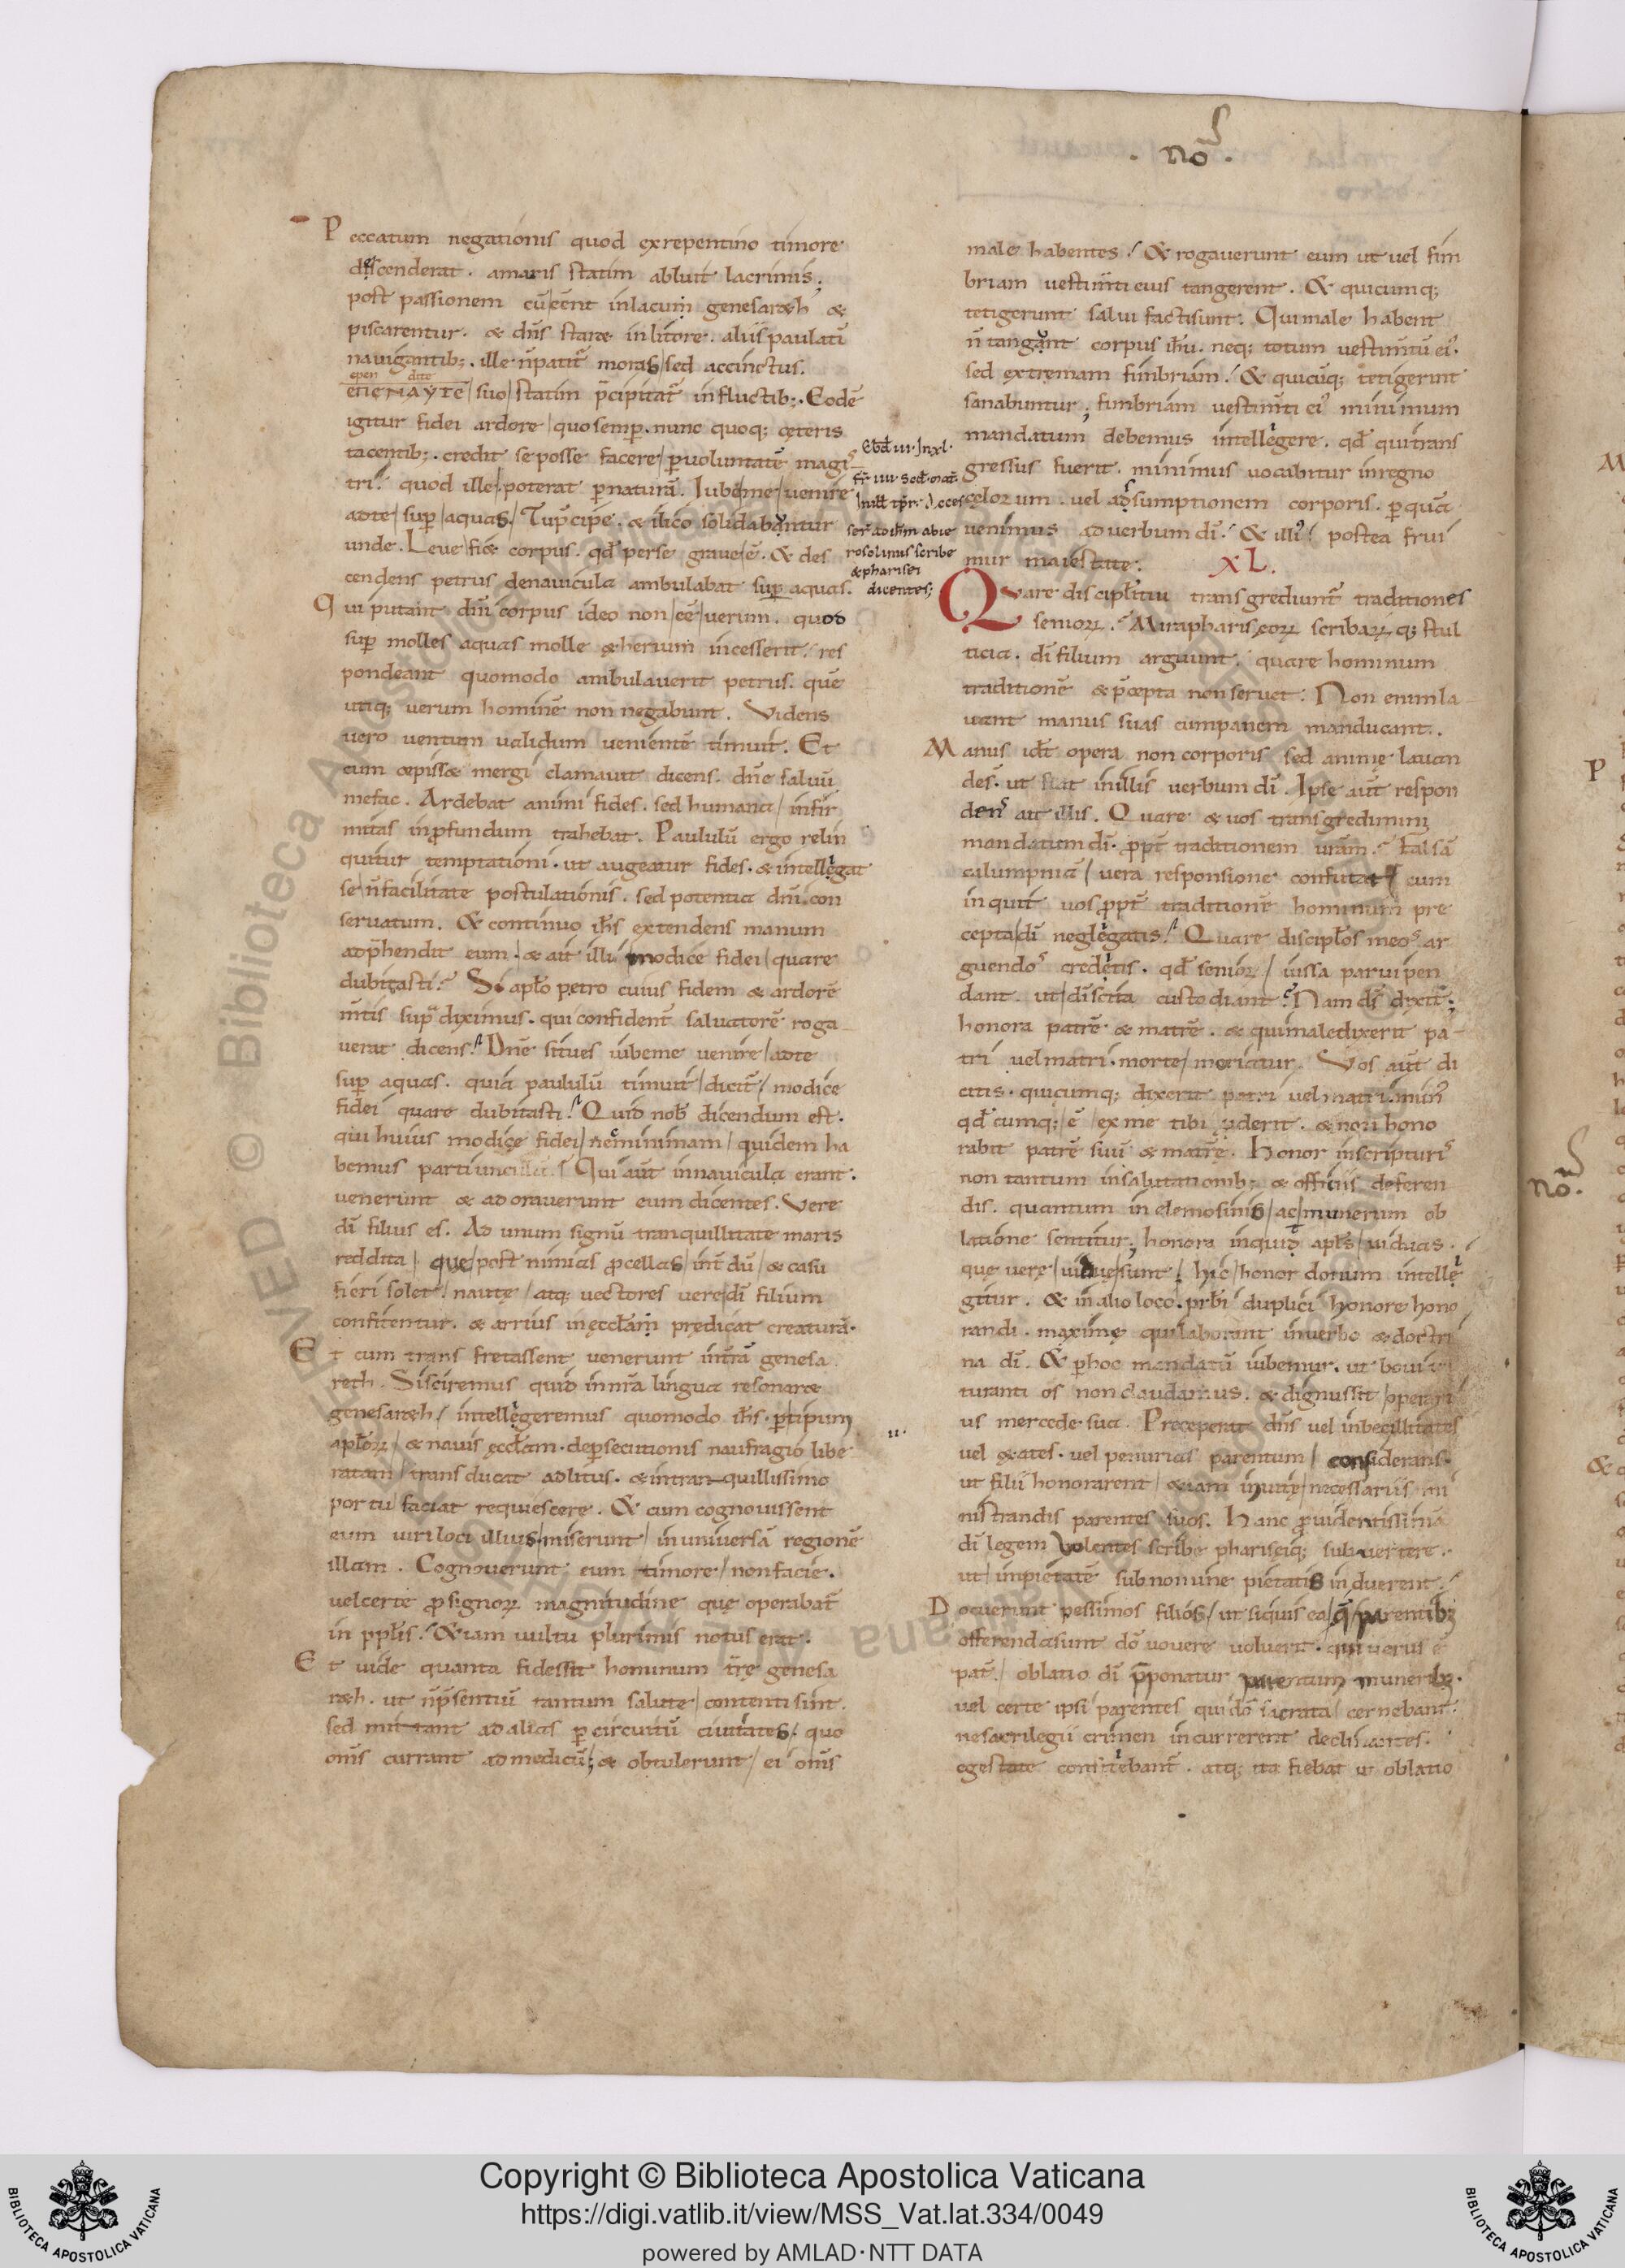 . no .
Peccatum negationis quod ex repentino timore
descenderat . amaris statim abluit lacrimis;
post passionem cū ēēnt in lacum genesareth &
piscarentur . & dn̄s staret in litore . aliis paulatī
navigantib; . ille n̄ patit̄ moras / sed accinctus .
epen dite
suo / statim p̄cipitat̄ in fluctib; . Eodē
igitur fidei ardore / quo semp̄ . nunc quoq; cęteris
tacentib; . credit se posse facere / p̄ voluntatē magis
tri . quod ille / poterat p̄ naturā . Iube / me / venire
ad te / sup̄ / aquas / Tu p̄cipe . & ilico solidabantur
unde . Leve fi& corpus . qđ per se grave / ē . & des
cendens petrus de navicula ambulabat sup̄ aquas .
Qui putant dn̄i corpus ideo non / ēē / verum . quod
sup̄ molles aquas molle & herium incesserit / res
pondeant quomodo ambulaverit petrus . quē
utiq; verum hominē non negabunt . Videns
vero ventum validum venientē timuit . Et
cum cepiss& mergi clamavit dicens . dn̄e salvū
me fac . Ardebat animi fides . sed humana / infir
mitas in p̄fundum trahebat . Paululū ergo relin
quitur temptationi . ut augeatur fides . & intellegat
se / n̄ facilitate postulationis . sed potentia dn̄i . con
servatum . & continuo ih̄s extendens manum
adp̄hendit eum . & ait illi modice fidei / quare
dubitasti . Si apł̄o petro cuius fidem & ardorē
m̄tis supª diximus . qui confident̄ salvatorē roga
verat dicens . Dn̄e si tu es iube me venire / ad te
sup̄ aquas . quia paululū timuit / dicit̄ / modice
fidei quare dubitasti . Quid nob̄ dicendum est .
qui huius modicę fidei / nec minimam / quidem ha
bemus partiunculā . Qui aūt in navicula erant .
venerunt & adoraverunt eum dicentes . Vere
dī filius es . Ad unum signū tranquillitate maris
reddita / que / post nimias p̄cellas / int̄dū / & casu
fieri solet . nautę / atq; vectores vere / dī filium
confitentur . & arrius in ęccłam predicat creaturā .
Et cum trans fretassent venerunt in t̄rā genesa
reth . Si sciremus quid in nr̄a lingua resonar&
genesareth / intellegeremus quomodo ih̄s . p̄ tipum
apłoꝝ / & navis ęccłam . de p̄secutionis naufragio libe
ratam / trans ducat ad litus . & in tranquillissimo
portu / faciat requiescere . & cum cognovissent
eum viri loci illius / miserunt / in universā regionē
illam . Cognoverunt eum timore / non facie .
vel certe p̄ signoꝝ magnitudine quę operabat̄
in ppłis . & iam vultu plurimis notus erat .
Et vide quanta fides sit hominum t̄re genesa
reth . ut n̄ p̄sentiū tantum salute / contenti sint .
sed mittant ad alias p̄ circuitū civitates / quo
om̄s currant ad medicū; & obtulerunt / ei om̄s
Ebđ VI . In XL .
Ad ih̄m ab ie
rosolimis scribe
& pharisei
dicentes;
male habentes / & rogaverunt eum ut vel fim
briam vestim̄ti eius tangerent . & quicumq;
tetigerunt salvi facti sunt . Qui male habent
n̄ tangant corpus ih̄u . neq; totum vestim̄tū ei⁹ .
sed extremam fimbriam / & quicūq; tetigerint
sanabuntur; fimbriam vestim̄ti ei⁹ minimum
mandatum debemus intellegere . qđ qui trans
gressus fuerit . minimus vocabitur in regno
cęlorum . vel adsumptionem corporis . p̄ quā
venimus ad verbum dī . & illi⁹ / postea frui
mur maiestate . XL .
Quare discipłi tui transgrediunt̄ traditiones
senioꝝ . Mira phariseoꝝ scribaꝝ q; stul
ticia . dī filium arguunt / quare hominum
traditionē & p̄cepta non servet . Non enim la
vant manus suas cum panem manducant .
Manus id ē opera non corporis sed animę lavan
dę . ut fiat in illis verbum dī . Ipse aūt respon
dens ait illis . Quare & vos transgredimini
mandatum dī . p̄pt̄ traditionem vr̄am . Falsā
calumpniā / vera responsione confutat / cum
inquit vos p̄pt̄ traditionē hominum pre
cepta / dī neglegatis . Quare discipłos meos ar
guendos creditis . qđ senioꝝ / iussa parvi pen
dant . ut dī scita custodiant . Nam dī dixit;
honora patrē & matrē . & qui maledixerit pa
tri vel matri . morte / moriatur . Vos aūt di
citis . quicumq; dixerit patri vel matri . mun⁹
qđ cumq; / ē / ex me tibi p̄derit . & non hono
rabit patrē suū & matrē . Honor in scripturis
non tantum in salutationib; & officiis deferen
dis . quantum in elemosinis / ac / munerum ob
latione sentitur; honora inquid apłs / viduas .
quę verę / viduę / sunt / hic / honor donum intellę
gitur . & in alio loco . prb̄i duplici honore hono
randi . maximę qui laborant in verbo & doctri
na dī . & p̄ hoc mandatū iubemur . ut bovi tri
turanti os non claudamus . & dignus sit / operari
us mercede sua . Preceperat dn̄s vel inbecillitates
vel &ates . vel penurias parentum / considerans .
ut filii honorarent / &iam in vitę / necessariis mi
nistrandis parentes suos . Hanc p̄videntissimā
dī legem volentes scribę phariseiq; subvertere .
ut / impietatē sub nomine pietatis inducerent .
Docuerunt pessimos filios / ut si quis ea / q̄ / parentib;
offerenda sunt dō vovere voluerit . qui verus ē
pat̄ / oblatio dī p̄ponatur parentum munerib; .
vel certe ipsi parentes qui dō sacrata / cernebant .
ne sacrilegii crimen incurrerent declinantes .
egestate conficiebant̄ . atq; ita fiebat ut oblatio
no .
Copyright © Biblioteca Apostolica Vaticana
https://digi.vatlib.it/view/MSS_Vat.lat.334/0049
powered by AMLAD·NTT DATA
BIBLIOTECA APOSTOLICA VATICANA
BIBLIOTECA APOSTOLICA VATICANA